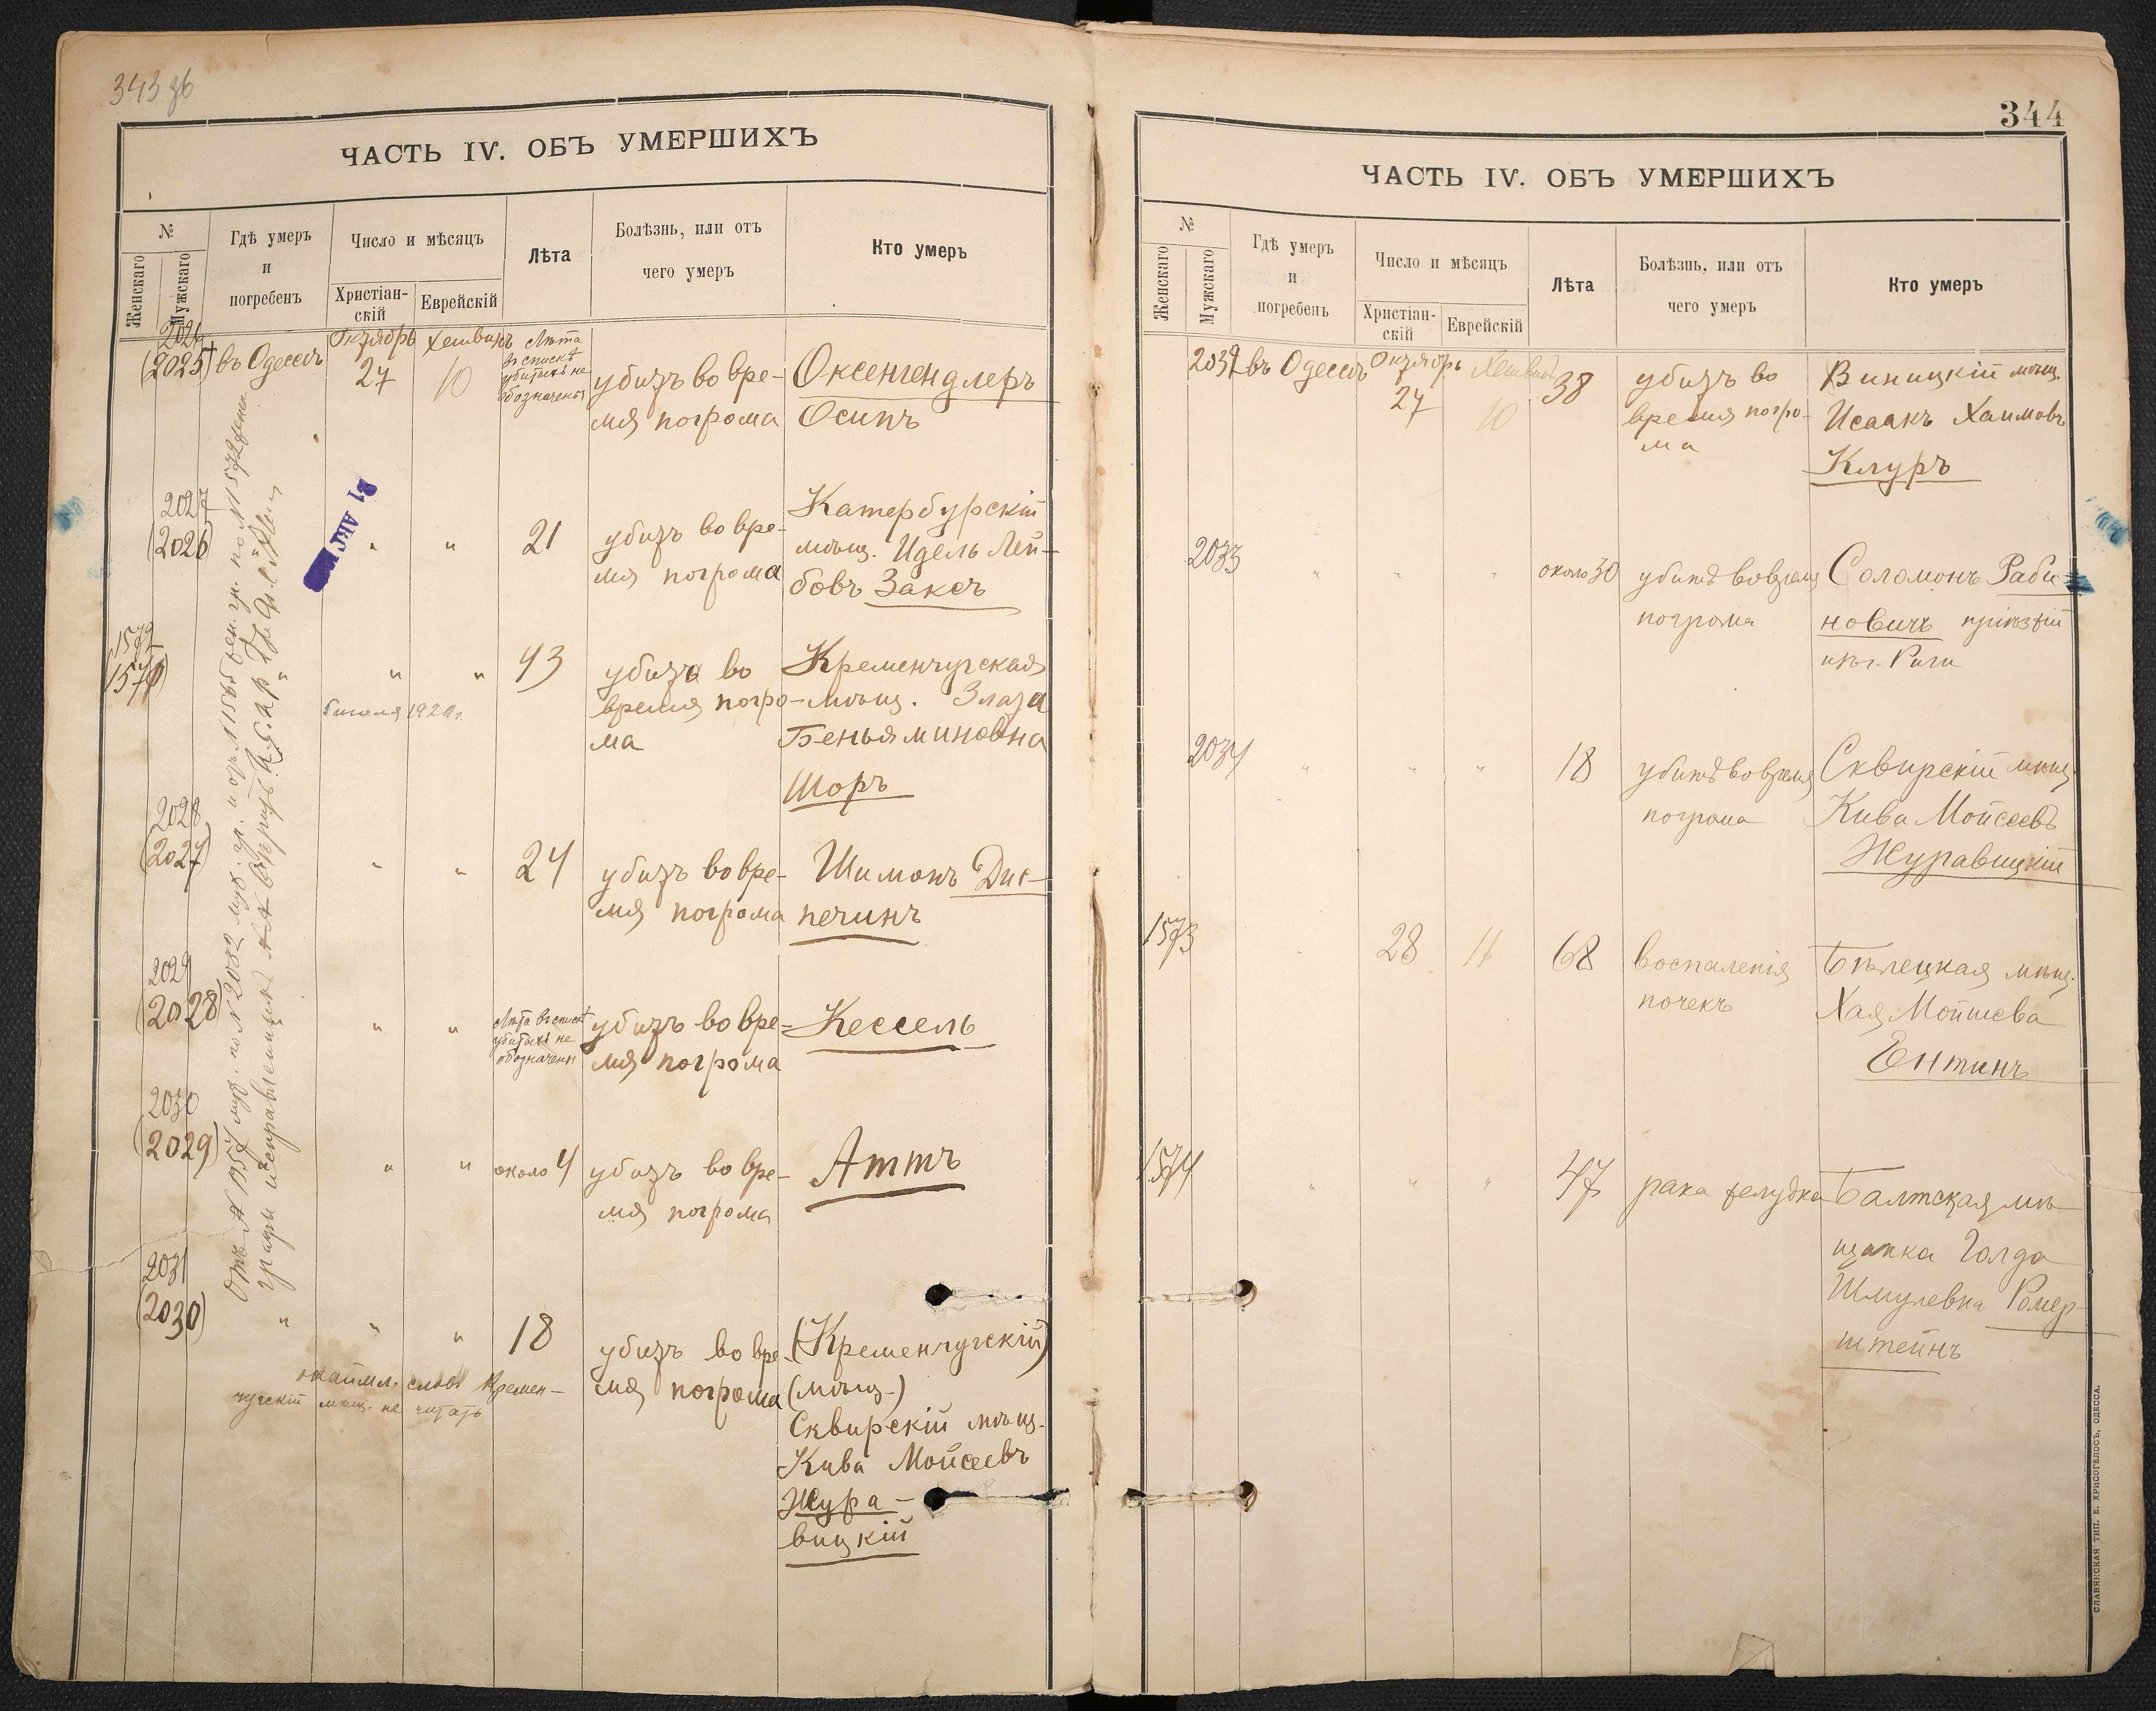 343 об
ЧАСТЬ IV. ОБЪ УМЕРШИХЪ
№
Женскаго
Мужскаго
Гдѣ умеръ
и
погребенъ
Число и мѣсяцъ
Христіан-
скій
Еврейскій
Лѣта
Болѣзнь, или отъ
чего умеръ
Кто умеръ
2026
(2025)
въ Одессѣ
Октябрь
27
Хешвинъ
10
Лѣта
въ спискѣ
убитыхъ не
обозначены
убитъ во вре-
мя погрома
Оксенгендлеръ
Осипъ
2027
(2026)
31 АВГ
"
"
21
убитъ во вре-
мя погрома
Катербурскій
мѣщ. Идель Лей-
бовъ Заксъ
1572
(1571)
"
"
43
убита во
время погро-
ма
Кременчугская
мѣщ. Злата
Беньяминовна
Шоръ
5 июля 1920 г.
2028
(2027)
"
"
24
убитъ во вре-
мя погрома
Шимонъ Дис-
печинъ
2029
(2028)
"
"
Лѣта въ спискѣ
убитыхъ не
обозначены
убитъ во вре-
мя погрома
Кессель
2030
(2029)
"
"
около 4
убитъ во вре-
мя погрома
Аттъ
2031
(2030)
"
"
"
18
убитъ во вре-
мя погрома
(Кременчугскій)
(мѣщ.)
Сквирскій мѣщ.
Кива Мойсеевъ
Жура-
вицкій
окаймл. слова Кремен-
чугскій мѣщ. не читать
344
ЧАСТЬ IV. ОБЪ УМЕРШИХЪ
№
Женскаго
Мужскаго
Гдѣ умеръ
и
погребенъ
Число и мѣсяцъ
Христіан-
скій
Еврейскій
Лѣта
Болѣзнь, или отъ
чего умеръ
Кто умеръ
2032
въ Одессѣ
Октябрь
27
10
38
убитъ во
время погро-
ма
Виницкій мѣщ.
Исаакъ Хаимовъ
Клуръ
2033
"
"
"
около 30
убитъ во время
погрома
Соломонъ Раби-
новичъ пріѣзжій
изъ г. Риги
2034
"
"
"
18
убитъ во время
погрома
Сквирскій мѣщ.
Кива Мойсеевъ
Журавицкій
1573
"
28
11
68
воспаленія
почекъ
Бѣлецкая мѣщ.
Хая Мойшева
Ентинъ
1574
"
"
"
47
рака желудка
Балтская мѣ-
щанка Голда
Шмулевна Ромер-
штейнъ
СЛАВЯНСКАЯ ТИП. Е. ХРИСОГЕЛОСЪ, ОДЕССА.